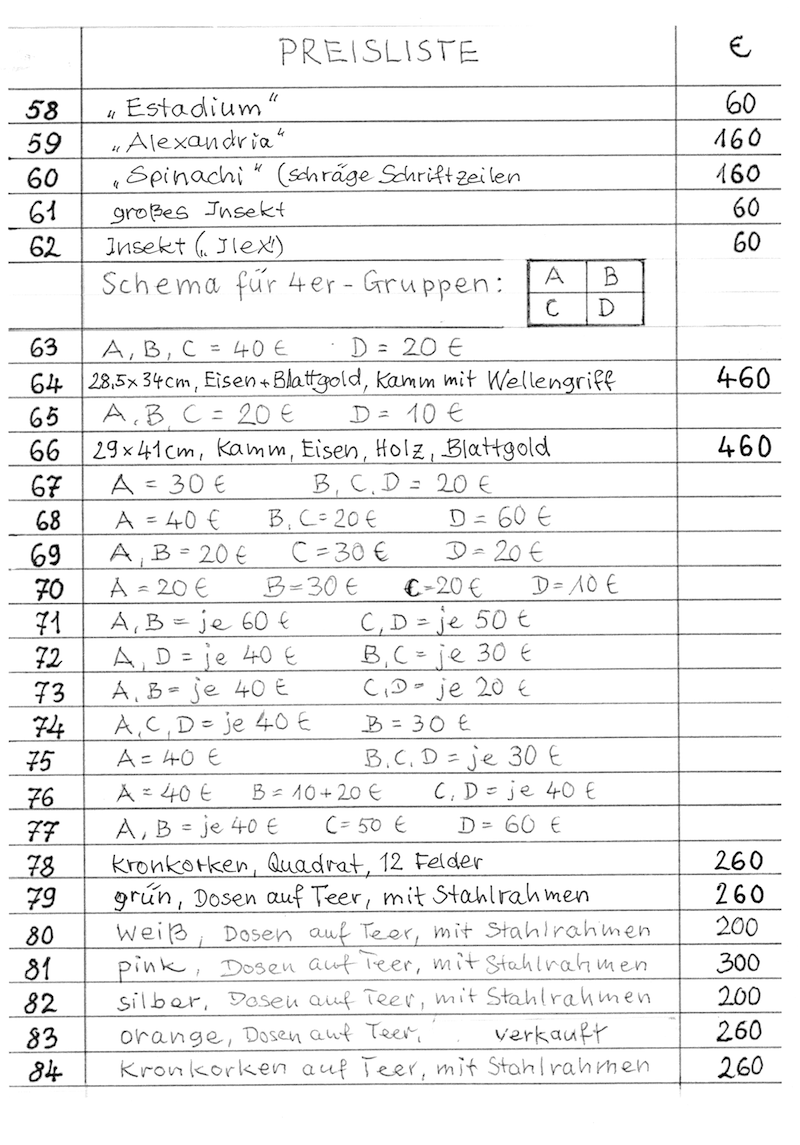 PREISLISTE €
58 „Estadium“ 60
59 „Alexandria“ 160
60 „Spinachi“ (schräge Schriftzeilen 160
61 großes Insekt 60
62 Insekt („Ilex“) 60
Schema für 4er-Gruppen: A B
C D
63 A, B, C = 40 € D = 20 €
64 28,5x34cm, Eisen+Blattgold, Kamm mit Wellengriff 460
65 A, B, C = 20 € D = 10 €
66 29x41cm, Kamm, Eisen, Holz, Blattgold 460
67 A = 30 € B, C, D = 20 €
68 A = 40 € B, C = 20 € D = 60 €
69 A, B = 20 € C = 30 € D = 20 €
70 A = 20 € B = 30 € C = 20 € D = 10 €
71 A, B = je 60 € C, D = je 50 €
72 A, D = je 40 € B, C = je 30 €
73 A, B = je 40 € C, D = je 20 €
74 A, C, D = je 40 € B = 30 €
75 A = 40 € B, C, D = je 30 €
76 A = 40 € B = 10+20 € C, D = je 40 €
77 A, B = je 40 € C = 50 € D = 60 €
78 Kronkorken, Quadrat, 12 Felder 260
79 grün, Dosen auf Teer, mit Stahlrahmen 260
80 Weiß, Dosen auf Teer, mit Stahlrahmen 200
81 pink, Dosen auf Teer, mit Stahlrahmen 300
82 silber, Dosen auf Teer, mit Stahlrahmen 200
83 orange, Dosen auf Teer, verkauft 260
84 Kronkorken auf Teer, mit Stahlrahmen 260